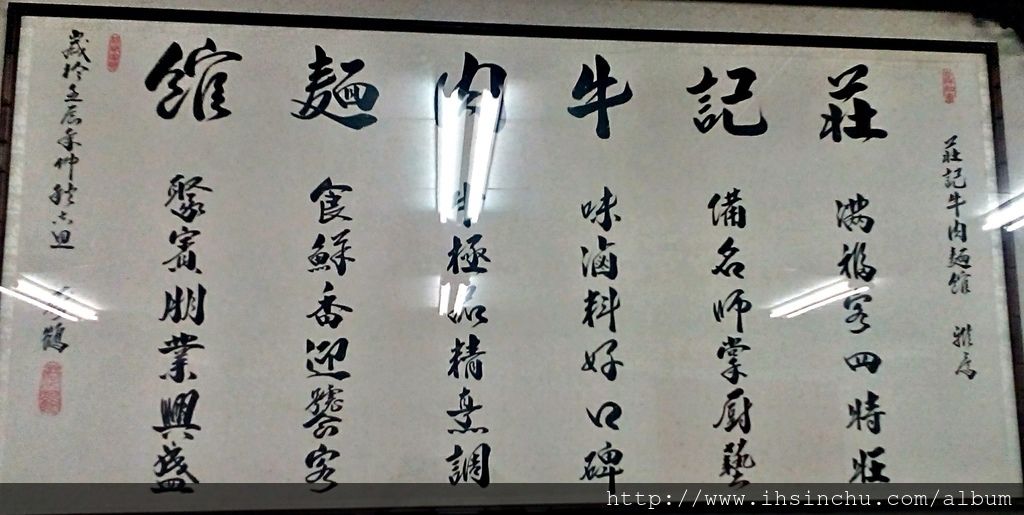 莊記牛肉麵館 雅屬
莊 滿福客四時旺
記 備名師掌廚藝
牛 味滷料好口碑
肉 牛極品精烹調
麵 食鮮香迎饕客
館 聚賓朋業興盛
歲於壬辰年仲秋
鶴
http://www.ihsinchu.com/album